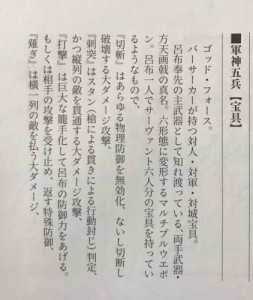 ■軍神五兵【宝具】
ゴッド・フォース。
バーサーカーが持つ対人・対軍・対城宝具。
呂布奉先の主武器として知れ渡っている、両手武器・
方天画戟の真名。六形態に変形するマルチプルウエポ
ン。呂布一人でサーヴァント六人分の宝具を持ってい
るようなもので、
『切断』はあらゆる物理防御を無効化、ないし切断し
破壊する大ダメージ攻撃、
『刺突』はスタン（槍による貫きによる行動封じ）判定、
かつ縦列の敵を貫通する大ダメージ攻撃、
『打撃』は巨大な籠手化して呂布の防御力をあげる。
もしくは相手の攻撃を受け止め、返す特殊防御、
『薙ぎ』は横一列の敵を払う大ダメージ、